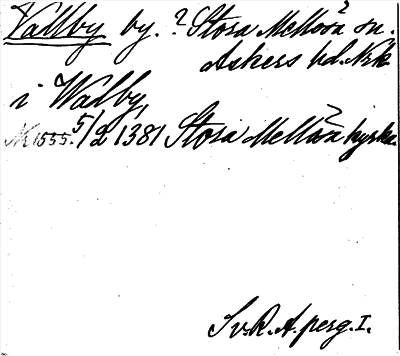 Vallby by. ? Stora Mellösa sn.
Askers hd. Nrk.
i Walby,
Nr 1555. 5/2 1381 Stora Mellösa kyrka.
Sv. R. A. perg. I.